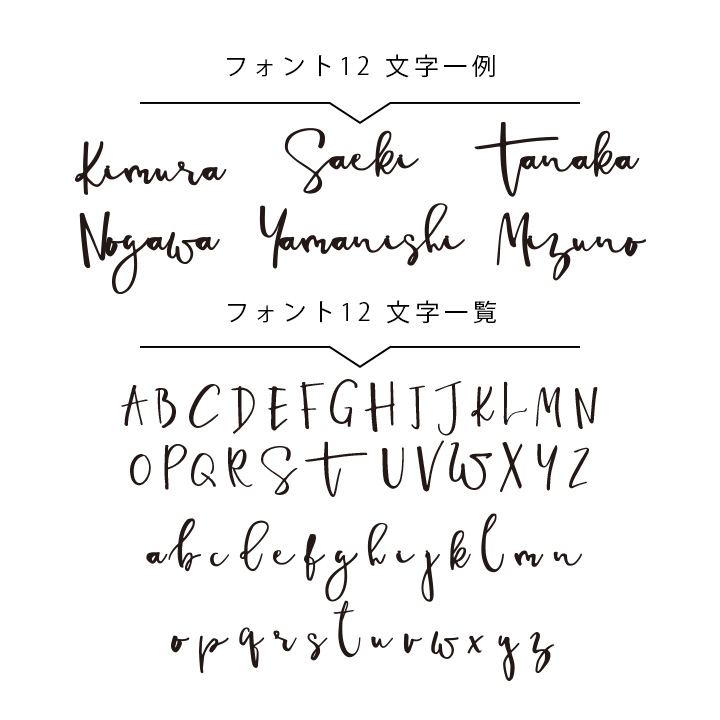 フォント12 文字一例
Kimura Saeki Tanaka
Nogawa Yamanishi Mizuno
フォント12 文字一覧
A B C D E F G H I J K L M N
O P Q R S T U V W X Y Z
a b c d e f g h i j k l m n
o p q r s t u v w x y z